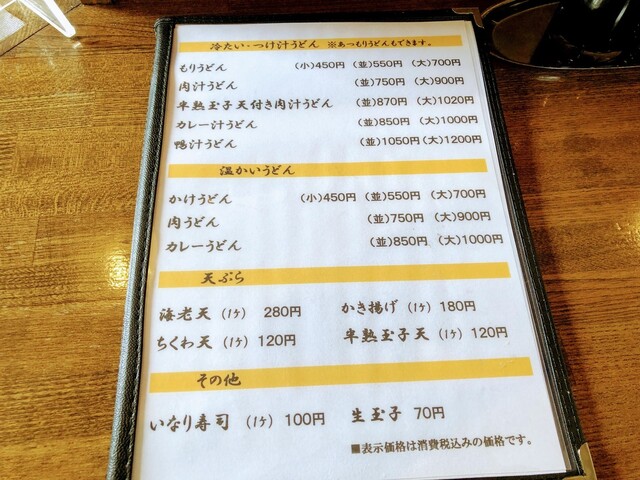 冷たい・つけ汁うどん ※あつもりうどんもできます。
もりうどん (小)450円 (並)550円 (大)700円
肉汁うどん (並)750円 (大)900円
半熟玉子天付き肉汁うどん (並)870円 (大)1020円
カレー汁うどん (並)850円 (大)1000円
鴨汁うどん (並)1050円 (大)1200円
温かいうどん
かけうどん (小)450円 (並)550円 (大)700円
肉うどん (並)750円 (大)900円
カレーうどん (並)850円 (大)1000円
天ぷら
海老天 (1ケ) 280円 かき揚げ (1ケ) 180円
ちくわ天 (1ケ) 120円 半熟玉子天 (1ケ) 120円
その他
いなり寿司 (1ケ) 100円 生玉子 70円
■表示価格は消費税込みの価格です。